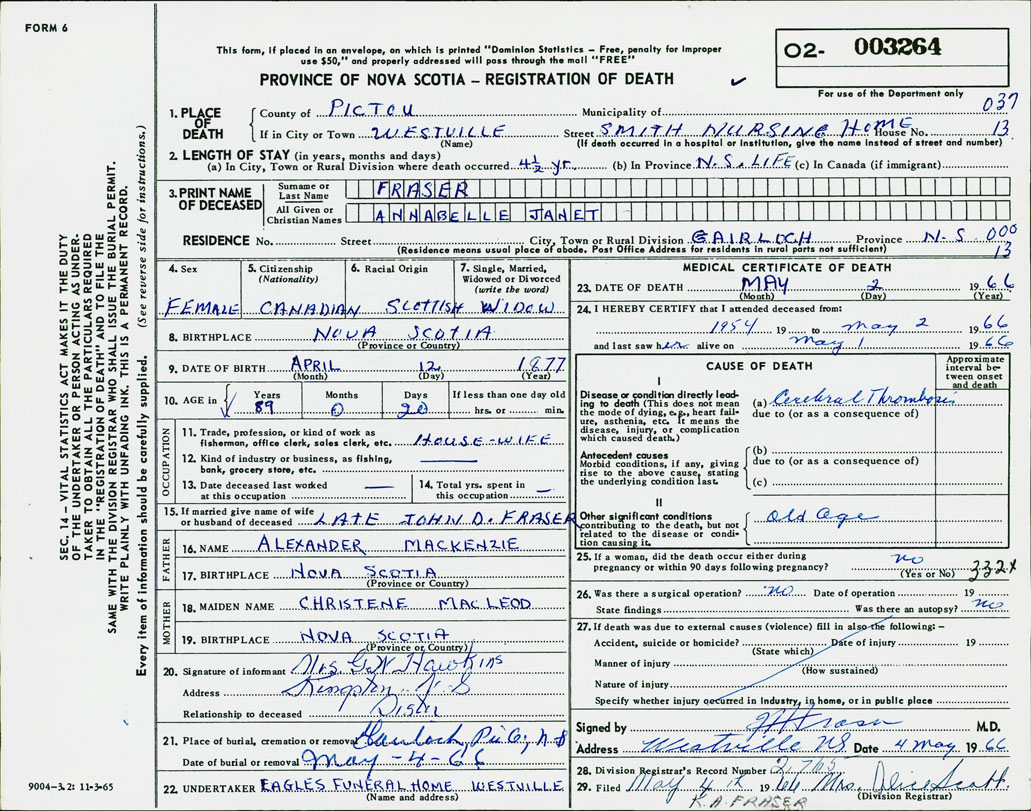 FORM 6
This form, if placed in an envelope, on which is printed "Dominion Statistics – Free, penalty for improper
use $50," and properly addressed will pass through the mail "FREE"
PROVINCE OF NOVA SCOTIA – REGISTRATION OF DEATH
02- 003264
For use of the Department only
037
1. PLACE OF DEATH
County of PICTOU Municipality of
If in City or Town WESTVILLE Street SMITH NURSING HOME House No. 13
(Name) (If death occurred in a hospital or institution, give the name instead of street and number)
2. LENGTH OF STAY (in years, months and days)
(a) In City, Town or Rural Division where death occurred 4½ yr. (b) In Province N.S. LIFE (c) In Canada (if immigrant)
3. PRINT NAME OF DECEASED
Surname or Last Name FRASER
All Given or Christian Names ANNABELLE JANET
RESIDENCE No. Street City, Town or Rural Division GAIRLOCH Province N.S. 000
(Residence means usual place of abode. Post Office Address for residents in rural parts not sufficient) 13
4. Sex 5. Citizenship (Nationality) 6. Racial Origin 7. Single, Married, Widowed or Divorced (write the word)
FEMALE CANADIAN SCOTTISH WIDOW
8. BIRTHPLACE NOVA SCOTIA
(Province or Country)
9. DATE OF BIRTH APRIL 12 1877
(Month) (Day) (Year)
10. AGE in Years Months Days If less than one day old
89 0 20 hrs. or min.
OCCUPATION
11. Trade, profession, or kind of work as
fisherman, office clerk, sales clerk, etc. HOUSE-WIFE
12. Kind of industry or business, as fishing,
bank, grocery store, etc.
13. Date deceased last worked
at this occupation
14. Total yrs. spent in
this occupation
15. If married give name of wife
or husband of deceased LATE JOHN D. FRASER
FATHER
16. NAME ALEXANDER MACKENZIE
17. BIRTHPLACE NOVA SCOTIA
(Province or Country)
MOTHER
18. MAIDEN NAME CHRISTENE MACLEOD
19. BIRTHPLACE NOVA SCOTIA
(Province or Country)
20. Signature of informant Mrs. G.W Hawkins
Address Kingston N.S
Relationship to deceased Sister
21. Place of burial, cremation or removal Gairloch, Pic Co, N.S
Date of burial or removal May - 4 - 66
22. UNDERTAKER EAGLES FUNERAL HOME WESTVILLE
(Name and address)
MEDICAL CERTIFICATE OF DEATH
23. DATE OF DEATH MAY 2 1966
(Month) (Day) (Year)
24. I HEREBY CERTIFY that I attended deceased from:
1954 19 to May 2 1966
and last saw her alive on May 1 1966
CAUSE OF DEATH
Approximate interval between onset and death
I
Disease or condition directly leading to death (This does not mean
the mode of dying, e.g., heart failure, asthenia, etc. It means the
disease, injury, or complication
which caused death.)
(a) Cerebral Thrombosis
due to (or as a consequence of)
Antecedent causes
Morbid conditions, if any, giving
rise to the above cause, stating
the underlying condition last.
(b)
due to (or as a consequence of)
(c)
II
Other significant conditions
contributing to the death, but not
related to the disease or condition causing it.
Old Age
25. If a woman, did the death occur either during
pregnancy or within 90 days following pregnancy? no
(Yes or No) 332X
26. Was there a surgical operation? no Date of operation 19
State findings Was there an autopsy? no
27. If death was due to external causes (violence) fill in also the following: –
Accident, suicide or homicide? Date of injury 19
(State which)
Manner of injury
(How sustained)
Nature of injury
Specify whether injury occurred in industry, in home, or in public place
Signed by M.D.
Address Westville NS Date 4 May 1966
28. Division Registrar's Record Number 2,765
29. Filed May 4th 1966 Mrs. Alice Scott
(Division Registrar)
K.A. FRASER
SEC. 14 – VITAL STATISTICS ACT MAKES IT THE DUTY
OF THE UNDERTAKER OR PERSON ACTING AS UNDER-
TAKER TO OBTAIN ALL THE PARTICULARS REQUIRED
IN THE "REGISTRATION OF DEATH" AND TO FILE THE
SAME WITH THE DIVISION REGISTRAR WHO SHALL ISSUE THE BURIAL PERMIT.
WRITE PLAINLY WITH UNFADING INK. THIS IS A PERMANENT RECORD.
Every item of information should be carefully supplied. (See reverse side for instructions.)
9004-3.2: 11-3-65